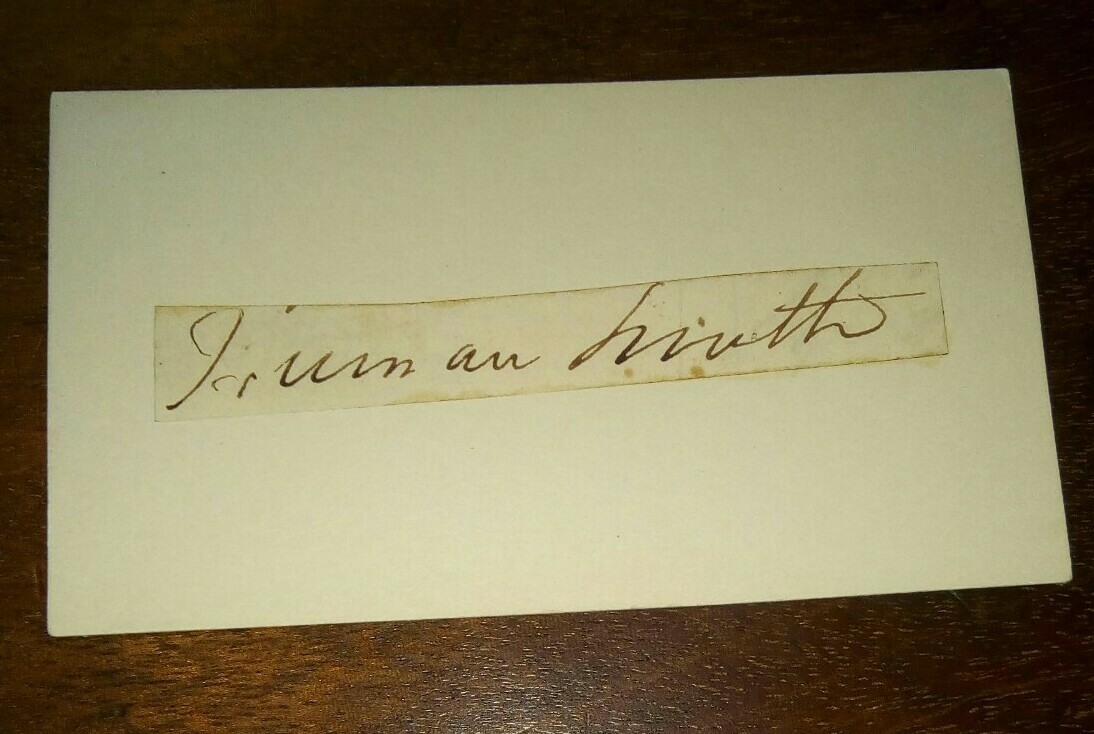 Truman Smith